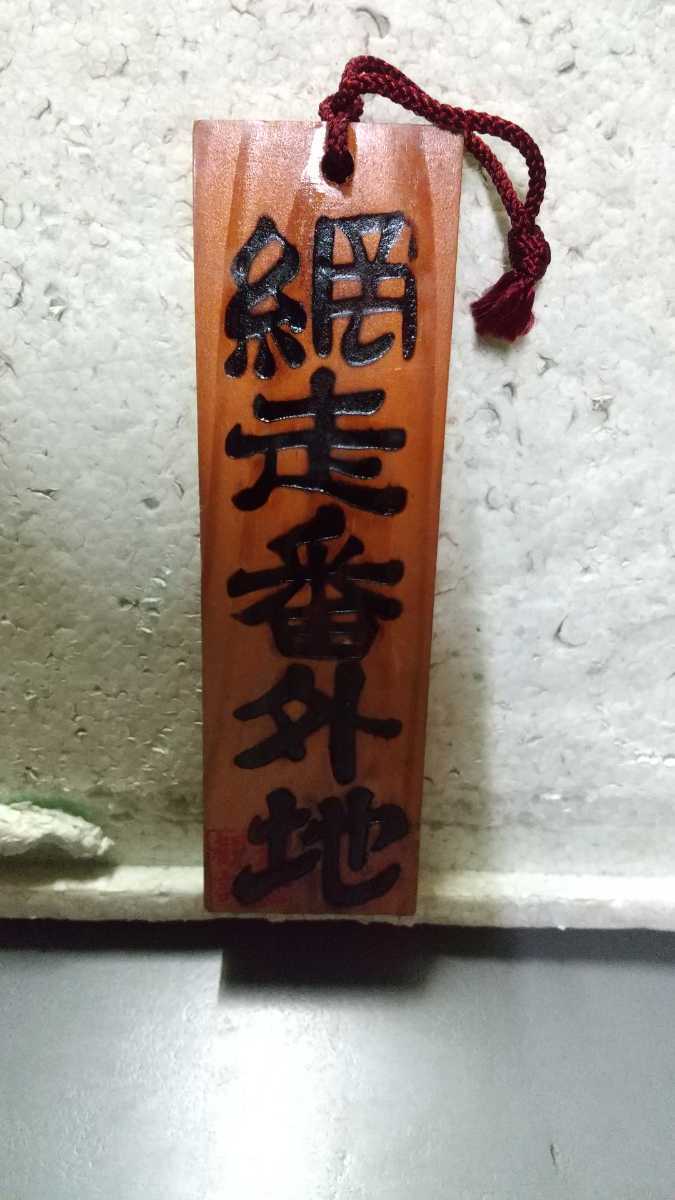 網走番外地